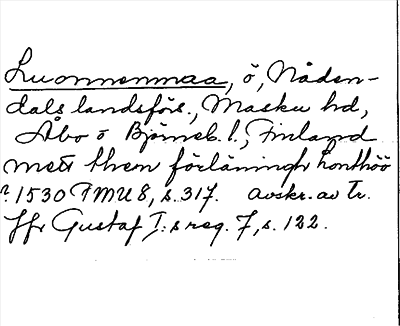 Luonnonmaa, ö, Nåden-
dals landsförs., Masku hd,
Åbo o Björneb. l., Finland
mett them förläningh honthöö
?. 1530 FMU 8, s. 317. avskr. av Tr.
Jfr Gustaf I:s reg. 7, s. 122.